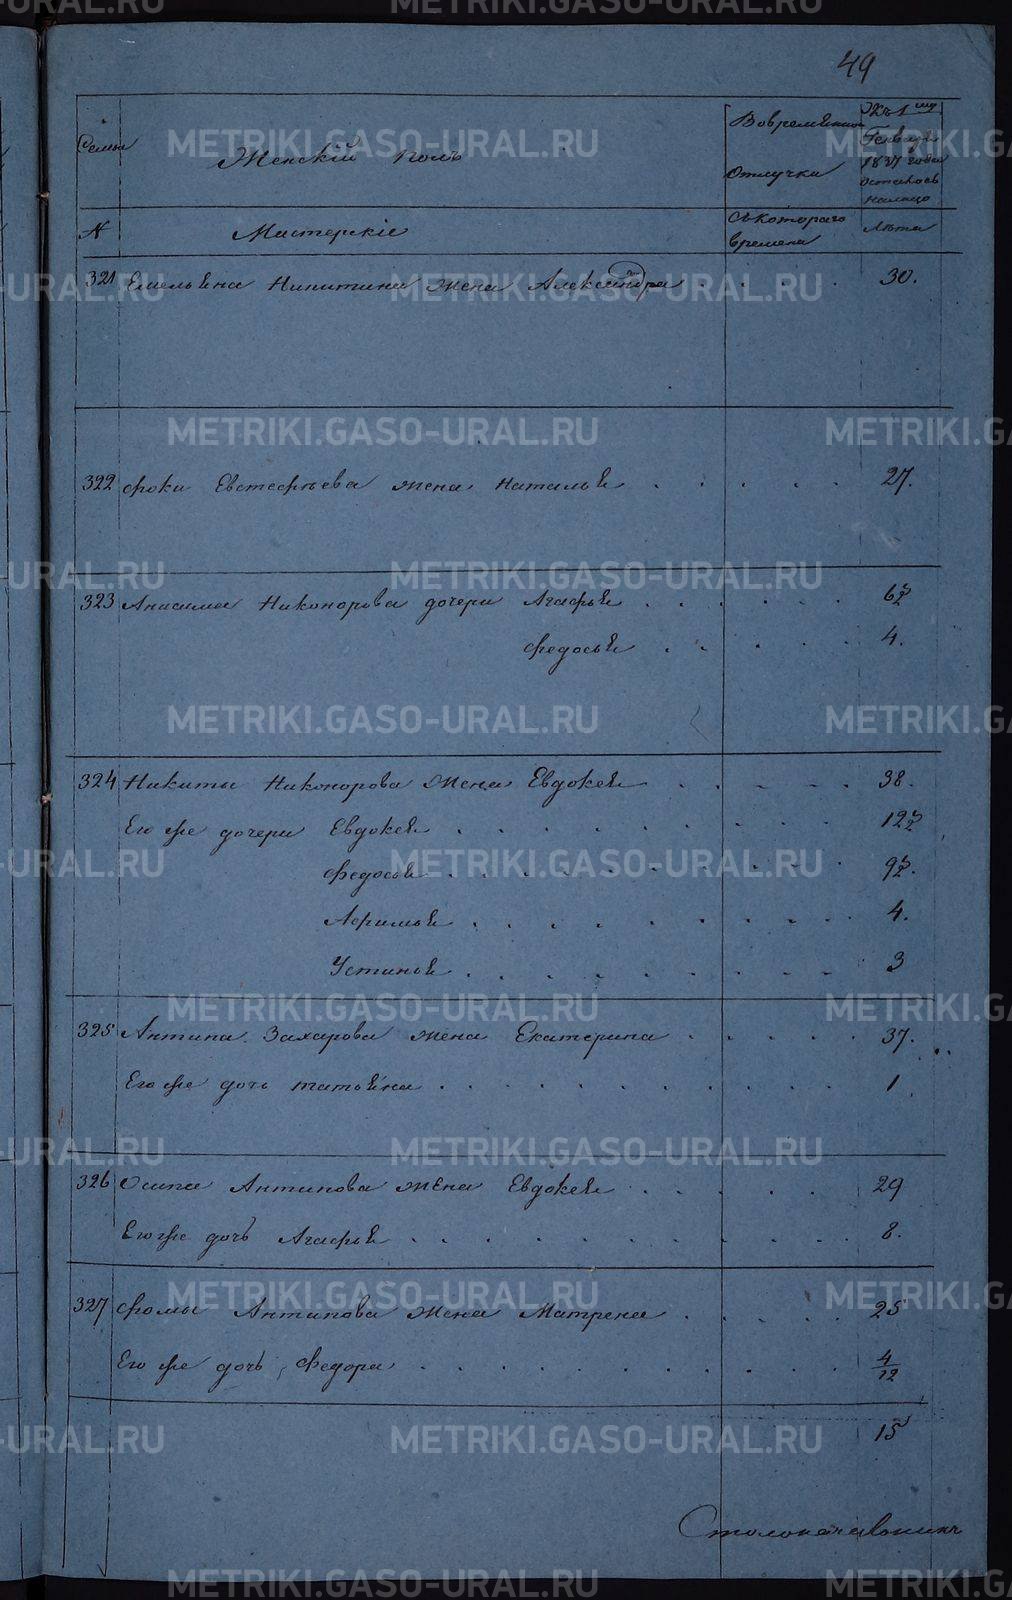 49
Семьи
Женскій полъ
Во временной
Отлучки
Къ 1му
Генваря
1837 года
Осталось
Налицо
№
Мастерскіе
Съ котораго
времени
Лѣта
321 Емельяна Никитина жена Александра . . . . 30.
322 Фоки Евстефѣева жена Наталья . . . . . 27.
323 Анисима Никонорова дочери Агафья . . . . . . 6½
Федосья . . . . . 4.
324 Никиты Никонорова жена Евдокея . . . . . 38.
Его же дочери Евдокея . . . . . . . . . . 12½
Федосья . . . . . . . . . . 9½.
Афимья . . . . . . . . . . 4.
Устинья . . . . . . . . . . 3
325 Антипа Захарова жена Екатерина . . . . . 37.
Его же дочь татьяна . . . . . . . . . . . 1
326 Осипа Антипова жена Евдокея . . . . . 29
Его же дочь Агафья . . . . . . . . . . . 8.
327 Фомы Антипова жена Матрена . . . . . 25
Его же дочь Федора . . . . . . . . . . 4/12
15
Столоначальникъ
METRIKI.GASO-URAL.RU